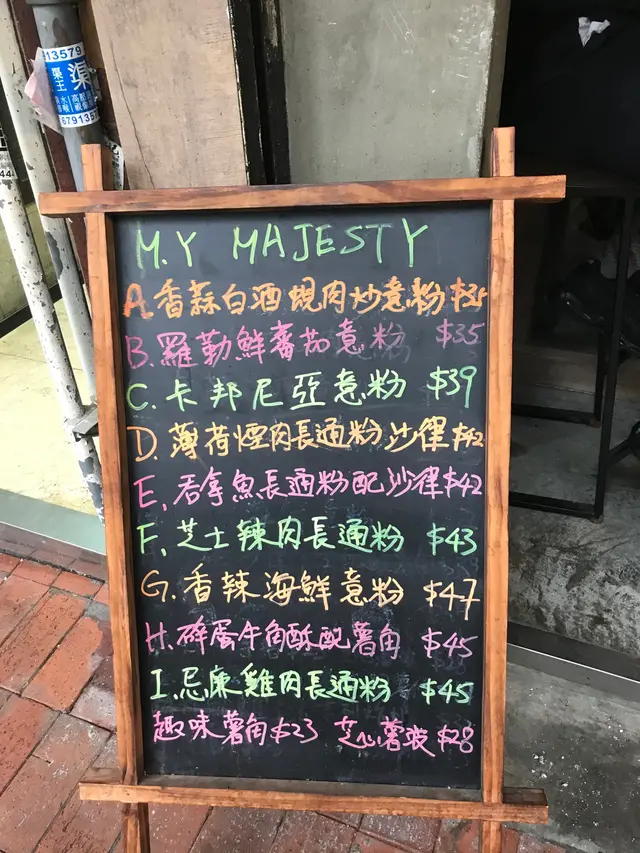 13579
渠王
M.Y MAJESTY
A.香蒜白酒蜆肉炒意粉 $35
B.羅勒鮮蕃茄意粉 $35
C.卡邦尼亞意粉 $39
D.薄荷煙肉長通粉沙律 $42
E.吞拿魚長通粉配沙律 $42
F.芝士辣肉長通粉 $43
G.香辣海鮮意粉 $47
H.碎蛋牛角酥配薯角 $45
I.忌廉雞肉長通粉 $45
趣味薯角 $23 芝心薯波 $28